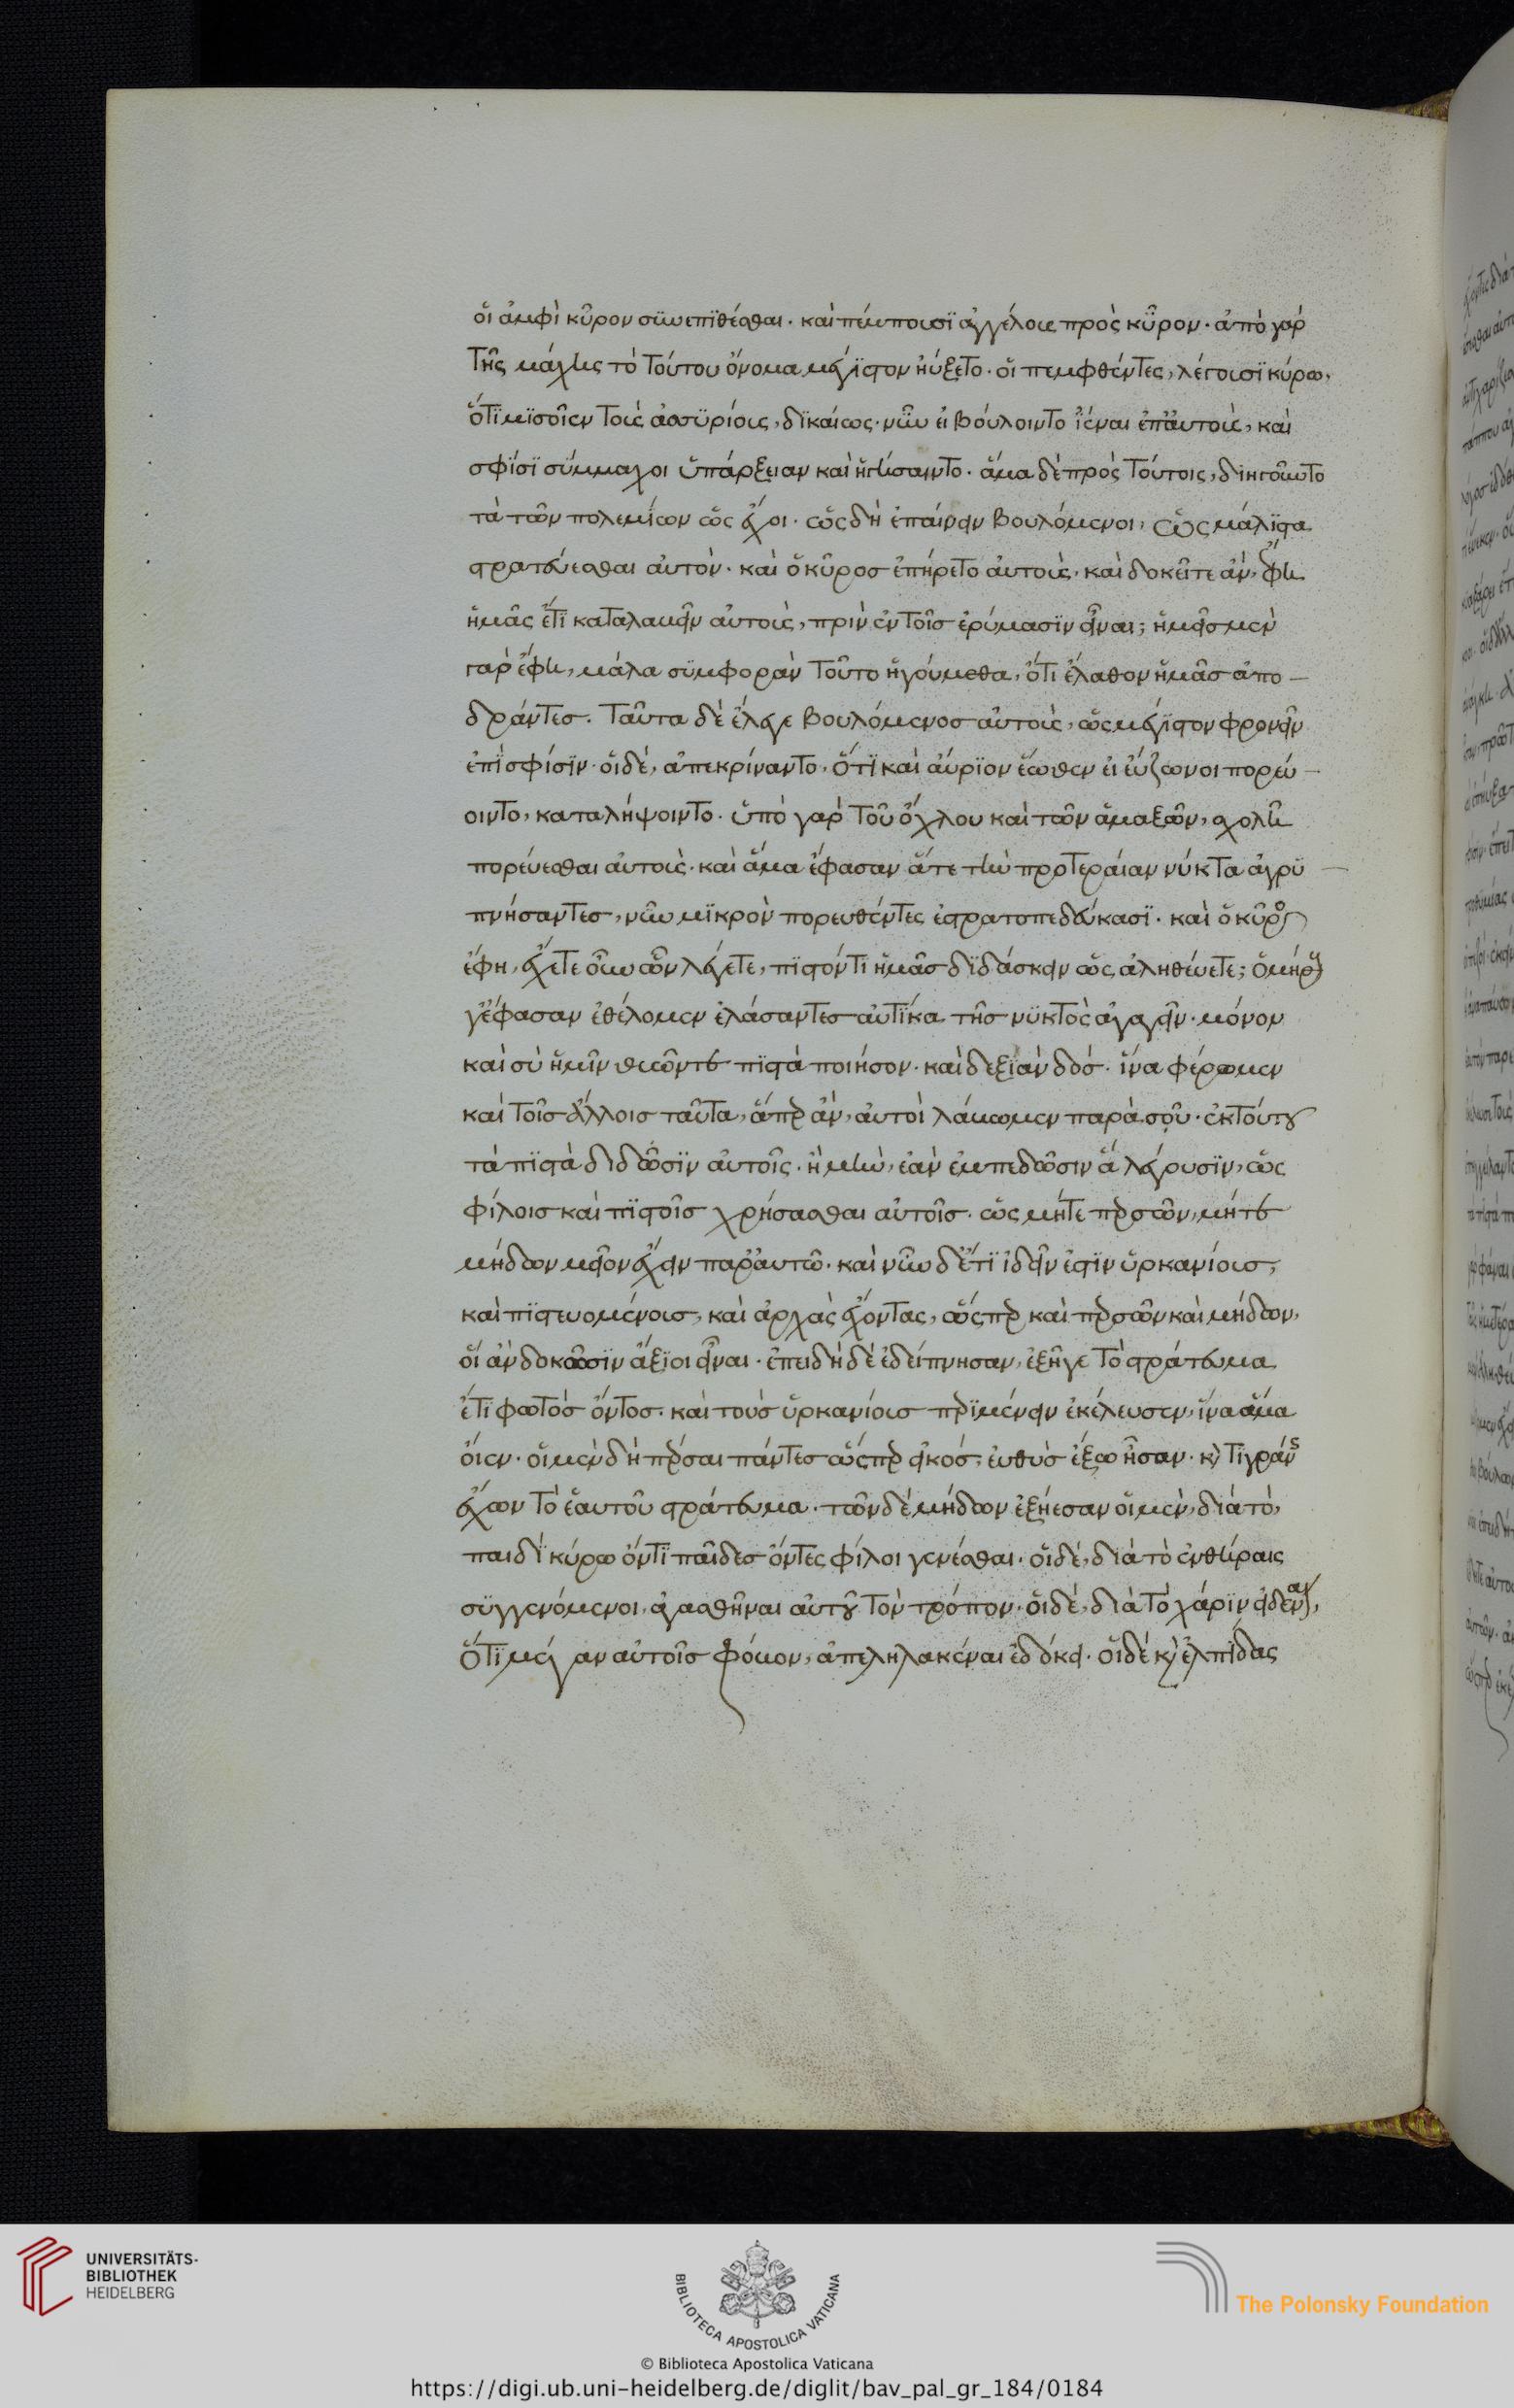 οἵ ἀμφὶ κῦρον σϋνεπϊθέσθαι· καὶ πέμπουσϊ ἀγγέλους πρὸς κῦρον· ἀπὸ γαρ
τῆς μάχης τὸ τούτου ὄνομα μέγϊστον ἠύξετο· οἱ πεμφθέντες, λέγουσϊ κύρω,
ὅτϊ μϊσοῖεν τοὺς ἀσσϋρίους, δϊκαίως· νῦν εἰ βόυλοιντο ἰέναι ἐπ' ἀυτοὺς, καὶ
σφίσϊ σϋμμαχοι ὑπάρξειαν καὶ ἡγήσαιντο· ἅμα δὲ πρὸς τούτοις, διηγοῦντο
τὰ τῶν πολεμίων ὡς ἔχοι· ὡς δὴ ἐπαίρειν βουλόμενοι, ὡς μάλϊστα
στρατεύεσθαι αὐτὸν· καὶ ὁ κῦροσ ἐπήρετο αὐτοὺς, καὶ δοκεῖτε ἀν, ἔφη
ἡμᾶς ἔτϊ καταλαβεῖν αὐτοὺς, πρὶν ἐν τοῖσ ἐρύμασϊν εἶναι; ἡμεῖσ μεν
γὰρ ἔφη, μάλα σϋμφορὰν τοῦτο ἡγούμεθα, ὅτι ἔλαθον ἡμᾶσ ἀπο –
δράντεσ. ταῦτα δὲ ἔλεγε βουλόμενοσ αὐτοὺς, ὡς μέγϊστον φρονεῖν
ἐπὶ σφίσϊν· οἵ δέ, ἀπεκρίναντο, ὅτϊ καὶ αὔρϊον ἕωθεν εἰ ἐύζωνοι πορεύ –
οιντο, καταλήψοιντο· ὑπὸ γαρ τοῦ ὄχλου καὶ τῶν ἁμαξῶν, σχολῆ
πορεύεσθαι αὐτοὺς· καὶ ἅμα ἔφασαν ἅτε τὴν προτεραίαν νύκτα ἀγρϋ –
πνήσαντεσ, νῦν μϊκρὸν πορευθέντες ἐστρατοπεδεύκασϊ· καὶ ὁ κῦρος
ἔφη, ἔχετε οὖν ὧν λέγετε, πϊστόν τϊ ἡμᾶσ δϊδάσκειν ὡς ἀληθεύετε; ὁμήρους
γ' ἔφασαν ἐθέλομεν ἐλάσαντεσ αὐτίκα τῆσ νϋκτὸς ἀγαγεῖν· μόνον
καὶ σὺ ἡμῖν θεῶν τε πϊστὰ ποιήσον· καὶ δεξϊὰν δόσ· ἵνα φέρωμεν
καὶ τοῖσ ἄλλοισ ταῦτα, ἅπερ ἀν, αὐτοὶ λάβωμεν παρὰ σοῦ· ἐκ τούτου
τὰ πϊστὰ δϊδῶσϊν αὐτοῖς· ἦ μὴν, ἐὰν ἐμπεδῶσιν ἅ λέγουσϊν, ὡς
φίλοισ καὶ πϊστοῖσ χρήσασθαι αὐτοῖσ· ὡς μήτε περσῶν, μήτε
μήδων μεῖον ἔχειν παρ' ἀυτῶ· καὶ νῦν δ' ἔτϊ ἰδεῖν ἐστϊν ὑρκανίουσ,
καὶ πϊστευομένουσ, καὶ ἀρχὰς ἔχοντας, ὥςπερ καὶ περσῶν καὶ μήδων,
οἵ ἀν δοκῶσϊν ἄξϊοι εἶναι· ἐπειδὴ δὲ ἐδείπνησαν, ἐξῆγε τὸ στράτευμα
ἔτϊ φωτὸσ ὄντοσ· καὶ τοὺσ ὑρκανίουσ περϊμένειν ἐκέλευσεν, ἵνα ἅμα
ὄιεν· οἵ μὲν δὴ πέρσαι πάντεσ ὥςπερ εἰκόσ, ἐυθὺσ ἔξω ἦσαν· κ) τϊγράνης
ἔχων τὸ ἑαυτοῦ στράτευμα· τῶν δὲ μήδων ἐξήεσαν οἵ μὲν, διὰ τὸ,
παιδὶ κύρω ὄντϊ παῖδεσ ὄντες φίλοι γενέσθαι· οἵ δέ, διὰ τὸ ἐν θήραις
σϋγγενόμενοι, ἀγασθῆναι αὐτοῦ τὸν τρόπον· οἵ δέ, διὰ τὸ χάρϊν εἰδέναι,
ὅτϊ μέγαν αὐτοῖσ φόβον, ἀπεληλακέναι ἐδόκει· οἵ δέ κ) ἐλπίδας
UNIVERSITÄTS-
BIBLIOTHEK
HEIDELBERG
BIBLIOTECA APOSTOLICA VATICANA
The Polonsky Foundation
© Biblioteca Apostolica Vaticana
https://digi.ub.uni-heidelberg.de/diglit/bav_pal_gr_184/0184